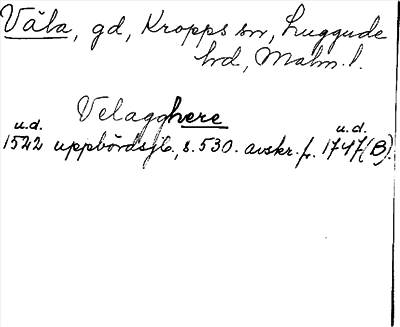 Väla, gd, Kropps sn, Luggude
hd, Malm. l.
Velagghere
u.d. u.d.
1542 uppbördsjb., s. 530. avskr. fr. 1747(B).